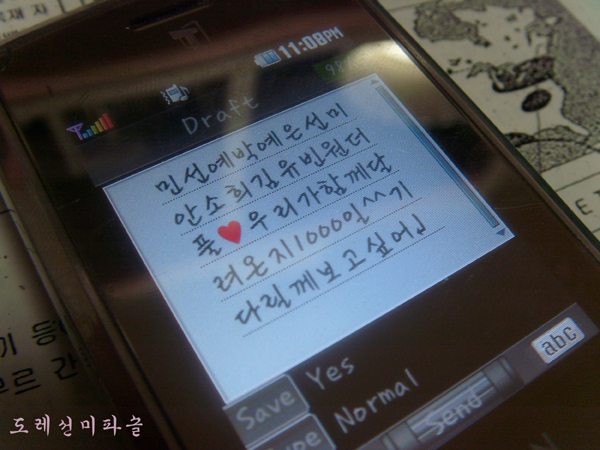 재 자
11:08PM
98
Draft
민선예박예은선미
안소희김유빈원더
풀♥우리가함께달
려온지1000일^^기
다릴께보고싶어♩
Save Yes
Type Normal
Send
abc
E T
기 등
부르 간
도레선미파솔